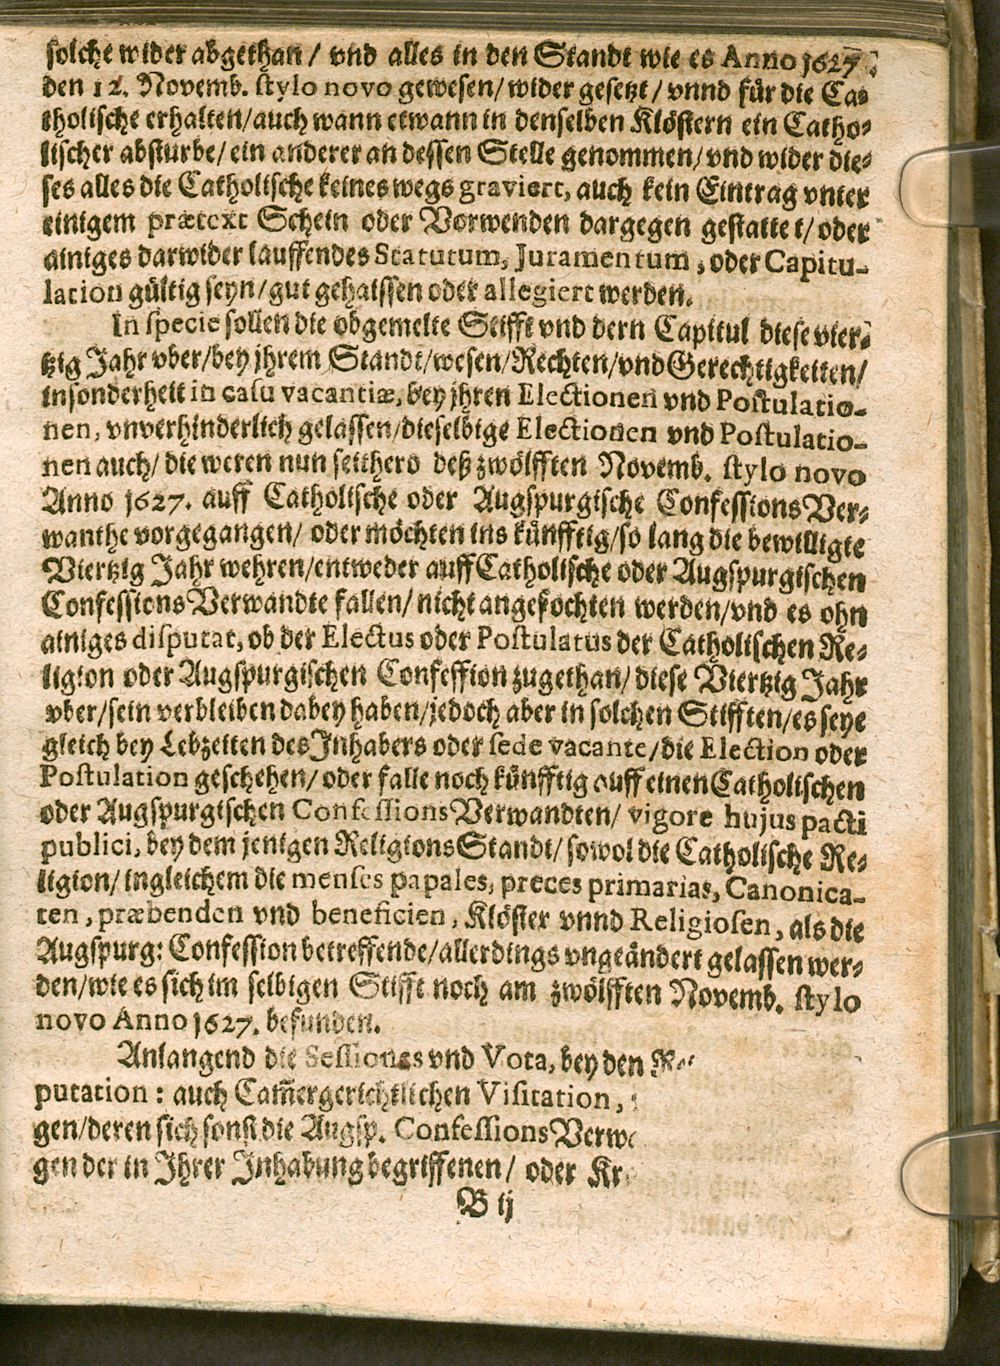 solche wider abgethan / vnd alles in den Standt wie es Anno 1627.
den 12. Novemb. stylo novo gewesen/wider gesetzt / vnnd für die Ca-
tholische erhalten/auch wann etwann in denselben Klöstern ein Catho-
lischer absturbe/ein anderer an dessen Stelle genommen/vnd wider die-
ses alles die Catholische keines wegs graviert, auch kein Eintrag vnter
einigem prætext Schein oder Vorwenden dargegen gestattet/oder
ainiges darwider lauffendes Statutum, Juramentum, oder Capitu-
lation gültig seyn/gut gehaissen oder allegiert werden.
In specie sollen die obgemelte Stifft vnd dern Capitul diese vier-
tzig Jahr vber/bey jhrem Standt/wesen/Rechten/vnd Gerechtigkeiten/
insonderheit in casu vacantiæ, bey jhren Electionen vnd Postulatio-
nen, vnverhinderlich gelassen/dieselbige Electionen vnd Postulatio-
nen auch/ die weren nun seithero deß zwölfften Novemb. stylo novo
Anno 1627. auff Catholische oder Augspurgische Confessions Ver-
wanthe vorgegangen/ oder möchten ins künfftig/so lang die bewilligte
Viertzig Jahr wehren/entweder auff Catholische oder Augspurgischen
Confessions Verwandte fallen/ nicht angefochten werden/vnd es ohn
ainiges disputat, ob der Electus oder Postulatus der Catholischen Re-
ligion oder Augspurgischen Confession zugethan/ diese Viertzig Jahr
vber/sein verbleiben dabey haben/jedoch aber in solchen Stifften/es seye
gleich bey Lebzeiten des Inhabers oder sede vacante/die Election oder
Postulation geschehen/ oder falle noch künfftig auff einen Catholischen
oder Augspurgischen Confessions Verwandten/ vigore hujus pacti
publici, bey dem jenigen Religions Standt/ sowol die Catholische Re-
ligion/ ingleichem die menses papales, preces primarias, Canonica-
ten, præbenden vnd beneficien, Klöster vnnd Religiosen, als die
Augspurg: Confession betreffende/allerdings vngeändert gelassen wer-
den/wie es sich im selbigen Stifft noch am zwölfften Novemb. stylo
novo Anno 1627. befunden.
Anlangend die Sessiones vnd Vota, bey den
putation : auch Cam̃ergerichtlichen Visitation,
gen/deren sich sonst die Augsp. Confessions Verw
gen der in Ihrer Inhabung begriffenen/ oder Kr
B ij